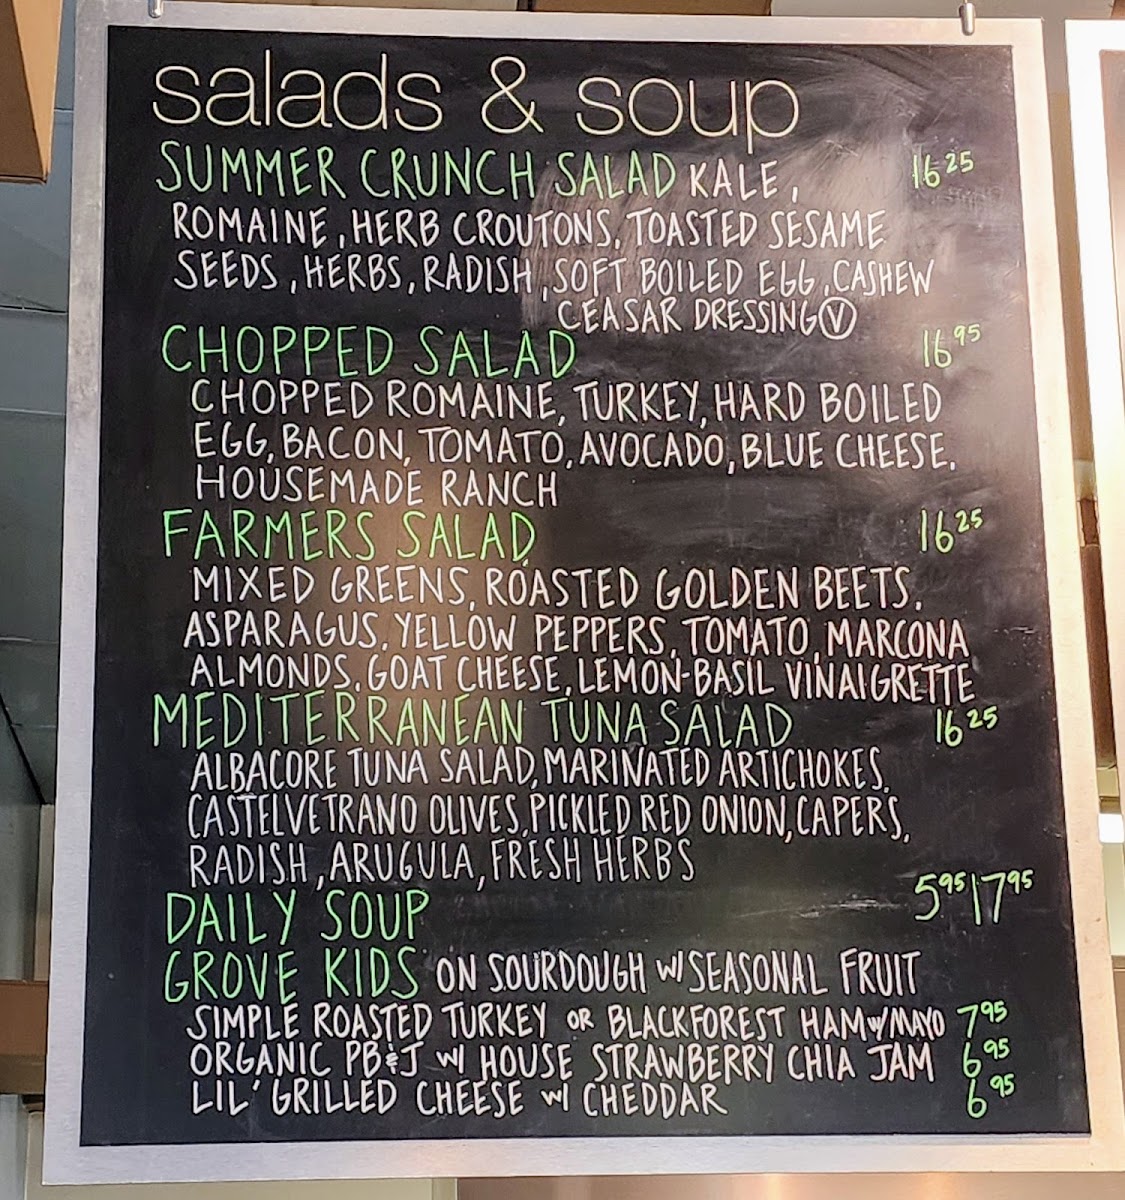 salads & soup
SUMMER CRUNCH SALAD KALE, 16 25
ROMAINE, HERB CROUTONS, TOASTED SESAME
SEEDS, HERBS, RADISH, SOFT BOILED EGG, CASHEW
CEASAR DRESSING Ⓥ
CHOPPED SALAD 16 95
CHOPPED ROMAINE, TURKEY, HARD BOILED
EGG, BACON, TOMATO, AVOCADO, BLUE CHEESE,
HOUSEMADE RANCH
FARMERS SALAD 16 25
MIXED GREENS, ROASTED GOLDEN BEETS,
ASPARAGUS, YELLOW PEPPERS, TOMATO, MARCONA
ALMONDS, GOAT CHEESE, LEMON-BASIL VINAIGRETTE
MEDITERRANEAN TUNA SALAD 16 25
ALBACORE TUNA SALAD, MARINATED ARTICHOKES,
CASTELVETRANO OLIVES, PICKLED RED ONION, CAPERS,
RADISH, ARUGULA, FRESH HERBS
DAILY SOUP 5 95 | 7 95
GROVE KIDS ON SOURDOUGH W/ SEASONAL FRUIT
SIMPLE ROASTED TURKEY OR BLACKFOREST HAM W/ MAYO 7 95
ORGANIC PB&J W/ HOUSE STRAWBERRY CHIA JAM 6 95
LIL' GRILLED CHEESE W/ CHEDDAR 6 95